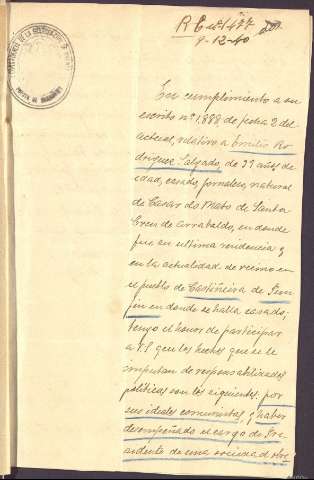 R E nº 1477
9-12-40
En cumplimiento a su
escrito nº 1.888 de fecha 2 del
actual, relativo a Emilio Ro-
driguez Salgado, de 39 años de
edad, casado, jornalero, natural
de Casar do Mato de Santa
Cruz de Arrabaldo, en donde
fue su ultima residencia y
en la actualidad de vecino en
el pueblo de Castiñeira de
en donde se halla casado;
tengo el honor de participar
a V.S que los hechos que se le
imputan de responsabilidades
políticas son los siguientes: por
sus ideales comunistas y haber
desempeñado el cargo de Pre-
sidente de una sociedad Obr